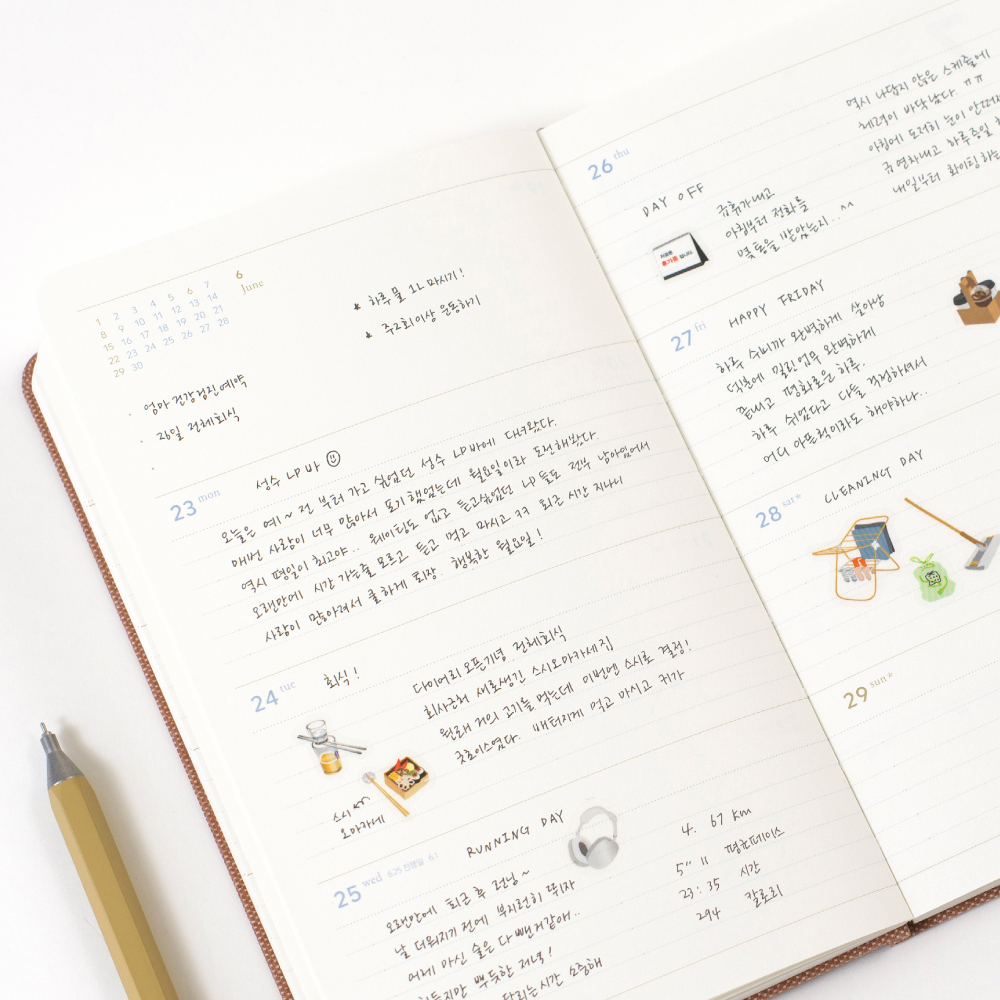 6
June
1 2 3 4 5 6 7
8 9 10 11 12 13 14
15 16 17 18 19 20 21
22 23 24 25 26 27 28
29 30
* 하루 물 1L 마시기!
* 주2회이상 운동하기
· 엄마 건강검진예약
· 24일 전체회식
·
23 mon
성수 LP바
오늘은 예~전 부터 가고 싶었던 성수 LP바에 다녀왔다.
매번 사람이 너무 많아서 포기했었는데 월요일이라 도전해봤다.
역시 평일이 최고야.. 웨이팅도 없고 듣고싶었던 LP들도 전부 남아있어서
오랜만에 시간 가는줄 모르고 듣고 먹고 마시고 ㅋㅋ 퇴근 시간 지나니
사람이 많아져서 쿨하게 퇴장 행복한 월요일!
24 tue
회식!
다이어리 오픈기념 전체회식
회사근처 새로생긴 스시오마카세집
원래 거의 고기를 먹는데 이번엔 스시로 결정!
굿초이스였다. 배터지게 먹고 마시고 귀가
스시
오마카세
25 wed 6.25 전쟁일 6.1
RUNNING DAY
오랜만에 퇴근 후 런닝~
날 더워지기 전에 부지런히 뛰자
어제 마신 술은 다 뺀거같애..
힘들지만 뿌듯한 저녁!
달리는시간 소중해
4.67 km
5" 11 평균페이스
23:35 시간
294 칼로리
26 thu
DAY OFF
휴가중 입니다.
금휴가내고
아침부터 전화를
몇통을 받았는지..^^
역시 나답지 않은 스케줄에
체력이 바닥났다 ㅠㅠ
아침에 도저히 눈이 안떠져
연차내고 하루종일
내일부터 화이팅하는
27 fri
HAPPY FRIDAY
하루 쉬니까 완벽하게 살아남
덕분에 밀린업무 완벽하게
끝내고 평화로운 하루.
하루 쉬었다고 다들 걱정하셔서
어디 아픈척이라도 해야하나..
28 sat
CLEANING DAY
29 sun